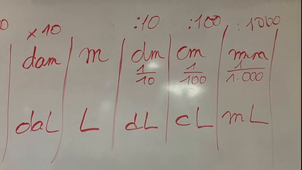 0 x10 :10 :100 :1000
dam m dm cm mm
1/10 1/100 1/1.000
daL L dL cL mL